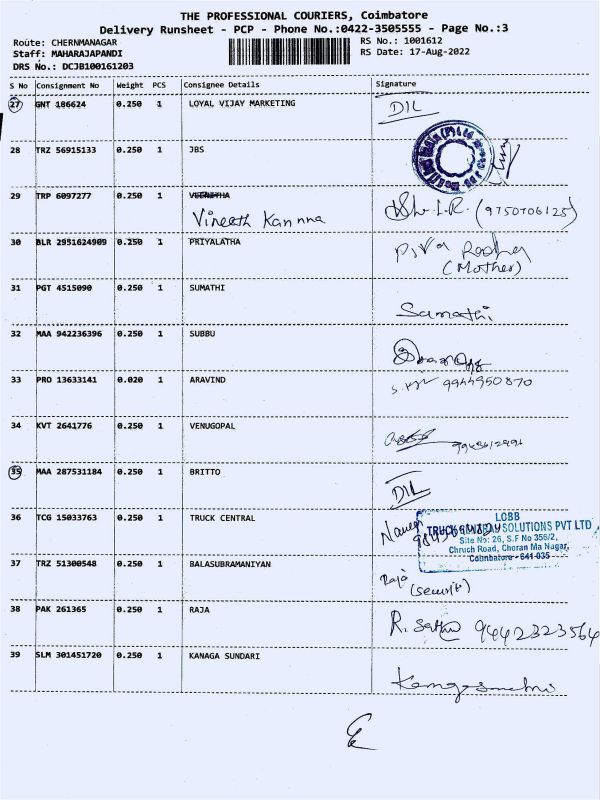 THE PROFESSIONAL COURIERS, Coimbatore
Delivery Runsheet - PCP - Phone No.:0422-3505555 - Page No.:3
Route: CHERNMANAGAR
RS No.: 1001612
Staff: MAHARAJAPANDI
RS Date: 17-Aug-2022
DRS No.: DCJB100161203
S No Consignment No Weight PCS Consignee Details Signature
27 GNT 186624 0.250 1 LOYAL VIJAY MARKETING DIL
28 TRZ 56915133 0.250 1 JBS
29 TRP 6097277 0.250 1
Vineeth Kannna (9750706125)
30 BLR 2951624909 0.250 1 PRIYALATHA
(Mother)
31 PGT 4515090 0.250 1 SUMATHI
Sumathi
32 MAA 942236396 0.250 1 SUBBU
33 PRO 13633141 0.020 1 ARAVIND 9944950870
34 KVT 2641776 0.250 1 VENUGOPAL
35 MAA 287531184 0.250 1 BRITTO
DIL
36 TCG 15033763 0.250 1 TRUCK CENTRAL
LOBB
SOLUTIONS PVT LTD
Site No: 26, S.F No 356/2,
Chruch Road, Choran Ma Nagar,
Coimbatore - 641 035
37 TRZ 51300548 0.250 1 BALASUBRAMANIYAN
Raja
38 PAK 261365 0.250 1 RAJA R. 9442323564
39 SLM 301451720 0.250 1 KANAGA SUNDARI